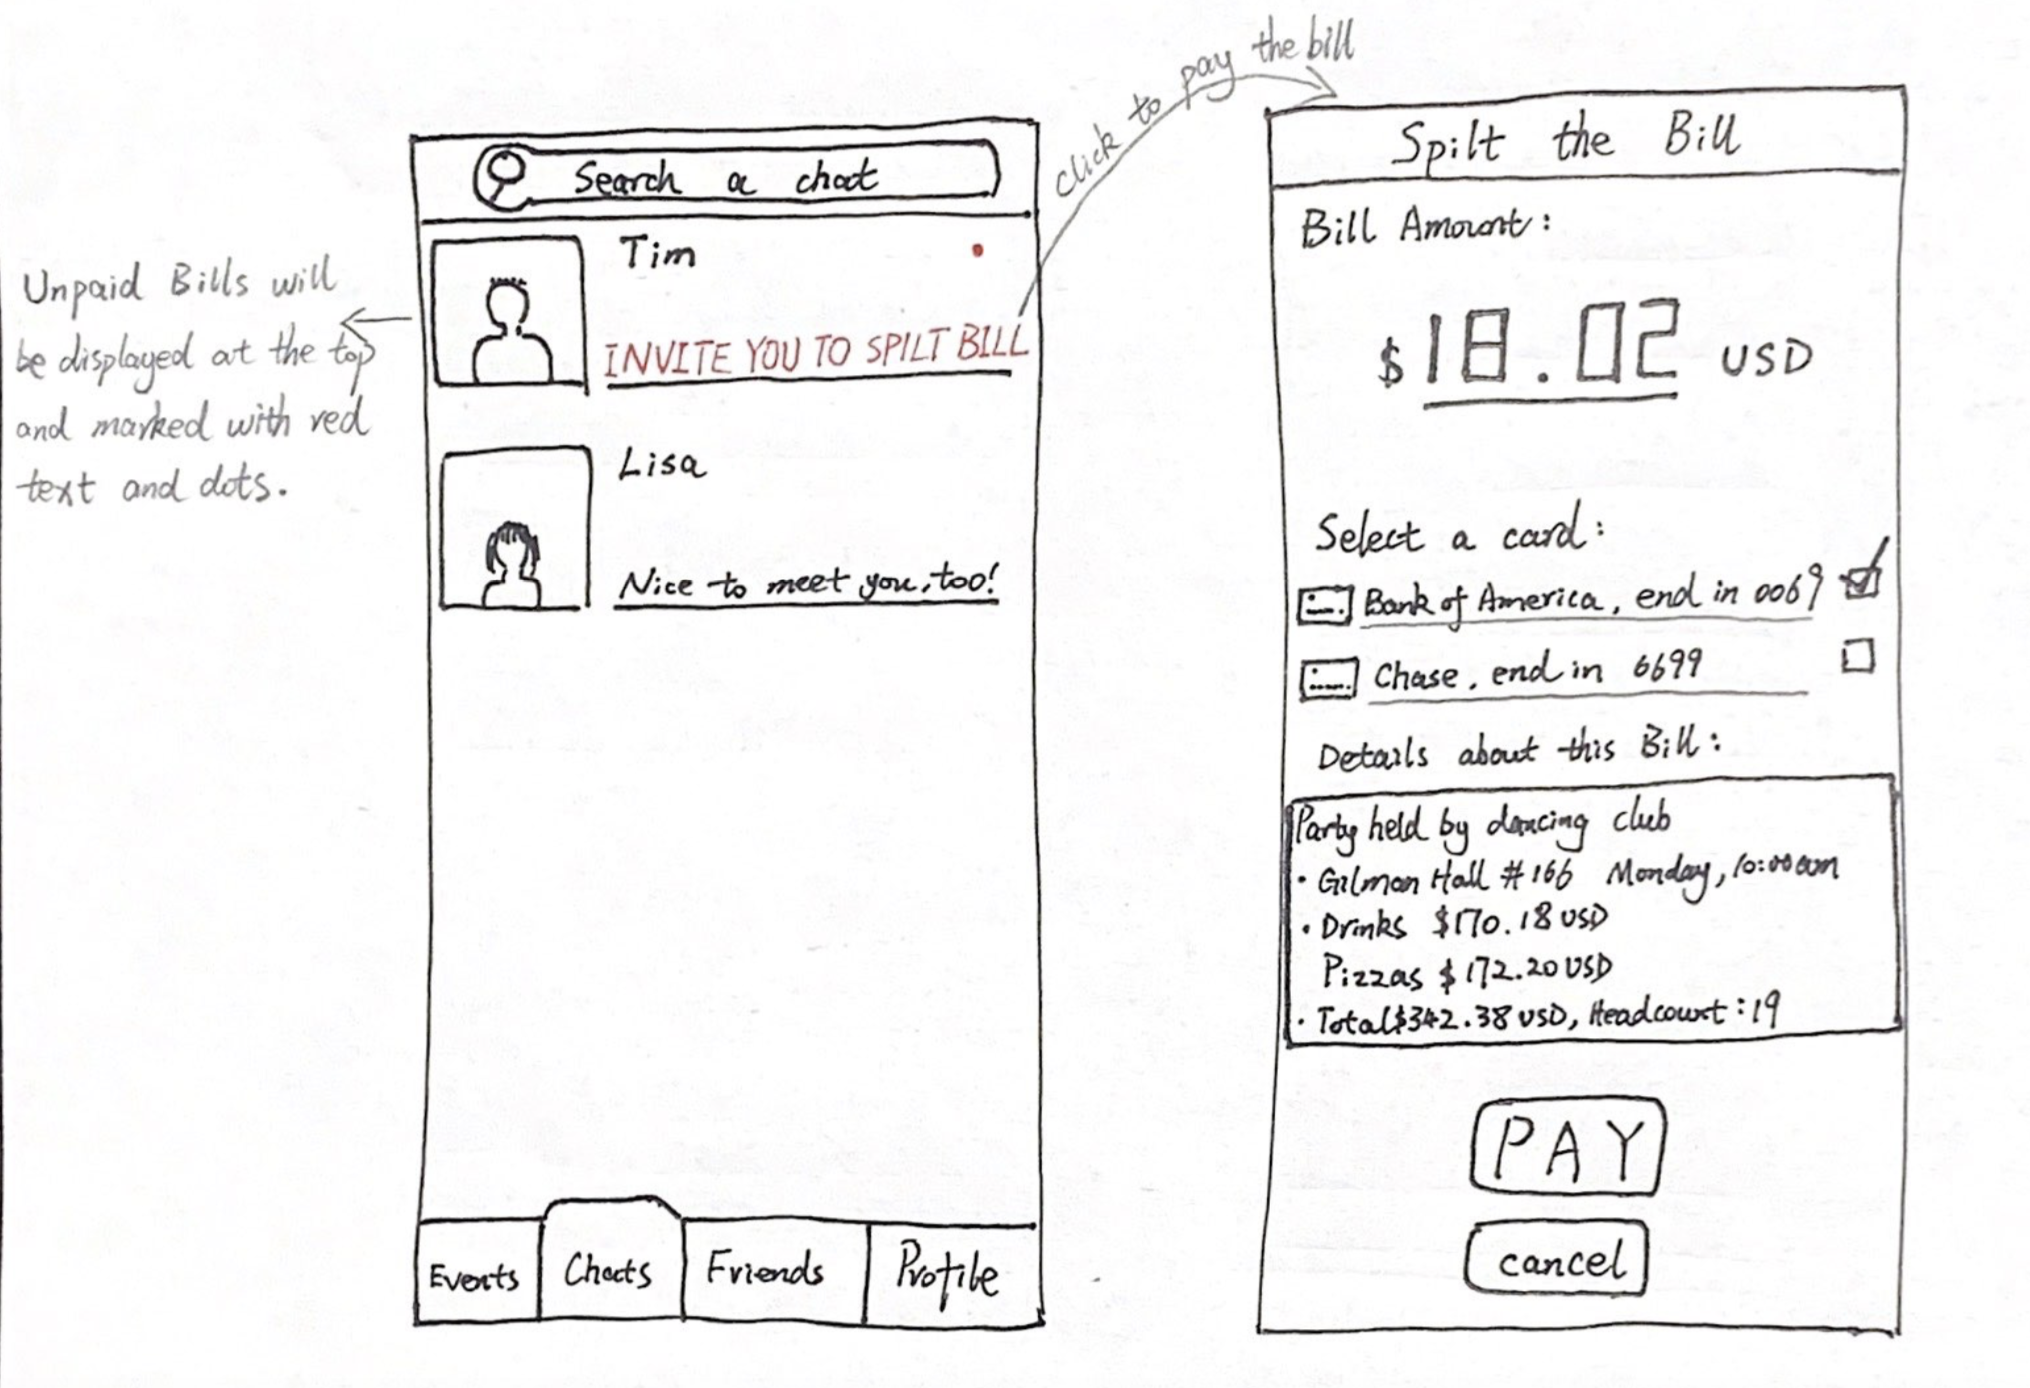 click to pay the bill
Unpaid Bills will
be displayed at the top
and marked with red
text and dots.
Search a chat
Tim
INVITE YOU TO SPILT BILL
Lisa
Nice to meet you, too!
Events
Chats
Friends
Profile
Spilt the Bill
Bill Amount:
$18.02 USD
Select a card:
Bank of America, end in 0069
Chase, end in 6699
Details about this Bill:
Party held by dancing club
• Gilman Hall #166 Monday, 10:00am
• Drinks $170.18 USD
Pizzas $172.20 USD
• Total $342.38 USD, Headcount: 19
PAY
cancel